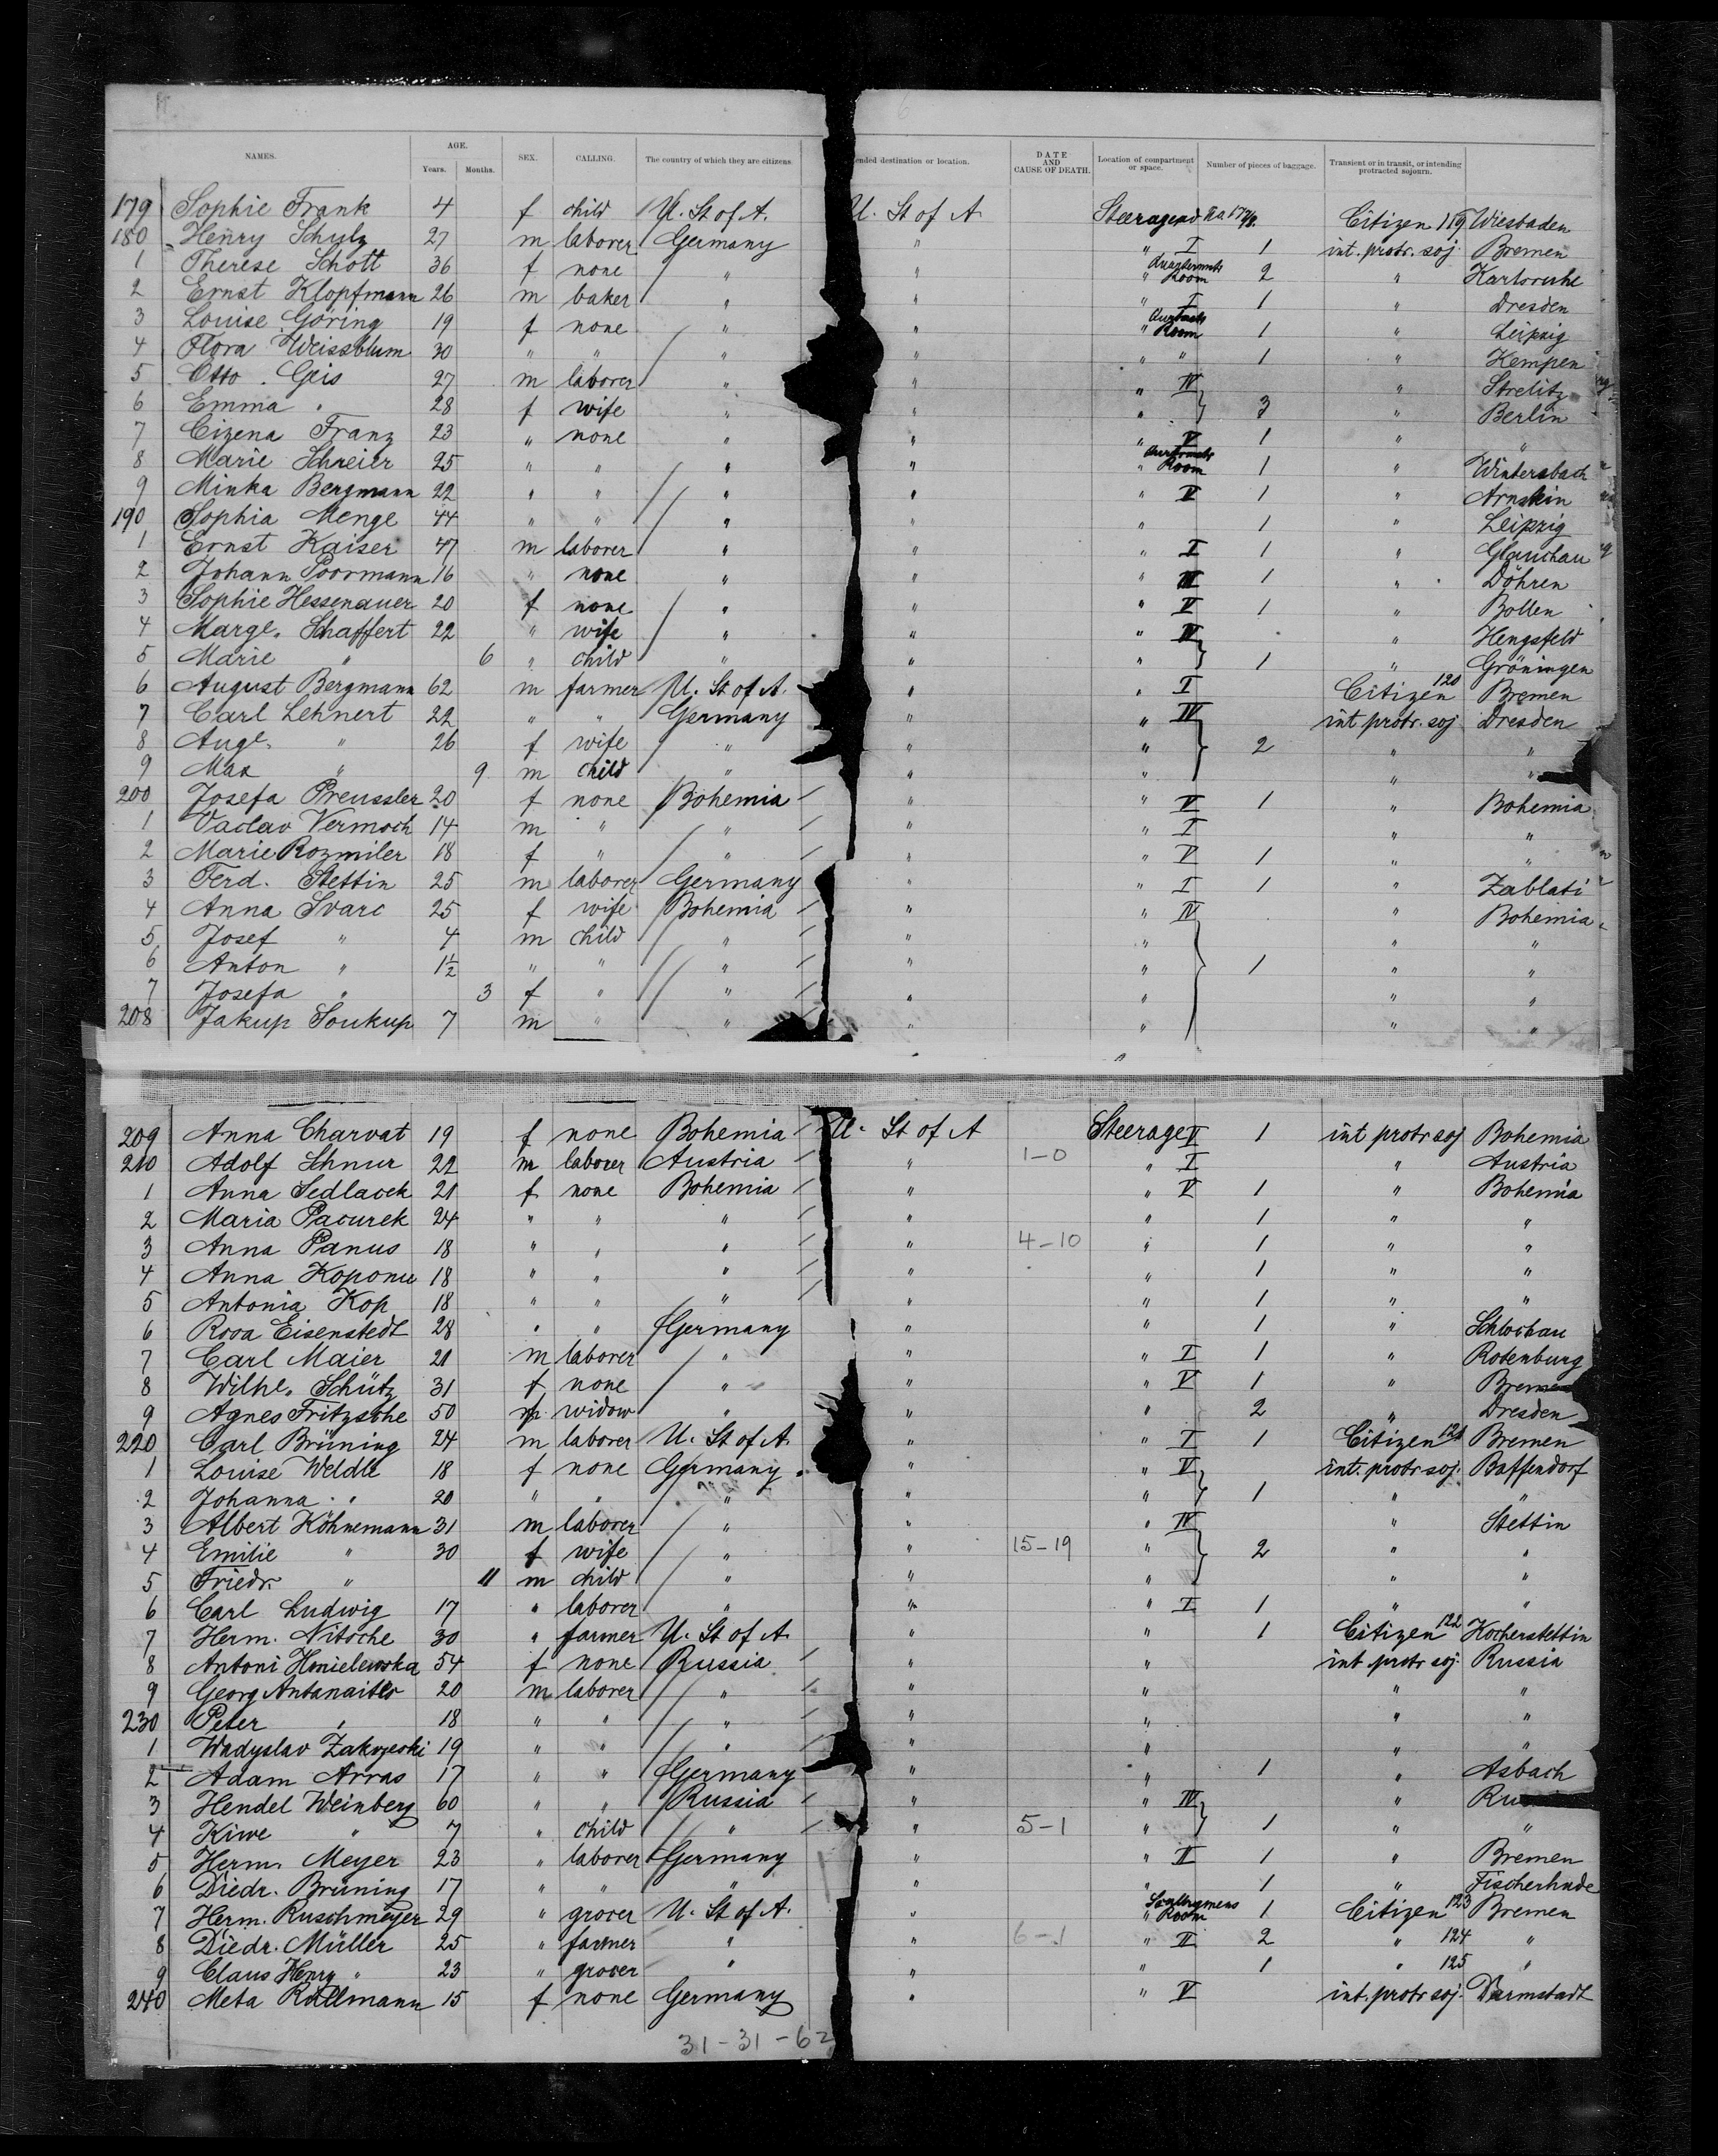 NAMES. AGE. Years. Months. SEX. CALLING. The country of which they are citizens. ended destination or location. DATE AND CAUSE OF DEATH. Location of compartment or space. Number of pieces of baggage. Transient or in transit, or intending protracted sojourn.
179 Sophie Frank 4 f child U. St of A. U. St of A Steerage Citizen 119 Wiesbaden
180 Henry Schulz 27 m laborer Germany " " I 1 int. protr. soj. Bremen
1 Therese Schott 36 f none " " " Room 2 " Karlsruhe
2 Ernst Klopfmann 26 m baker " " " I 1 " Dresden
3 Louise Göring 19 f none " " " Room 1 " Leipzig
4 Flora Weissblum 30 " " " " " " 1 " Kempen
5 Otto Geis 27 m laborer " " " IV " Strelitz
6 Emma " 28 f wife " " " 3 " Berlin
7 Cizena Franz 23 " none " " " V 1 " "
8 Marie Schreier 25 " " " " " Room 1 " Wintersbach
9 Minka Bergmann 22 " " " " " V 1 " Arnstein
190 Sophia Menge 44 " " " " " 1 " Leipzig
1 Ernst Kaiser 47 m laborer " " " I 1 " Glauchau
2 Johann Poormann 16 " none " " " III 1 " Döhren
3 Sophie Hessenauer 20 f none " " " V 1 " Bollen
4 Marge. Schaffert 22 " wife " " " IV " Hengsfeld
5 Marie " 6 " child " " " 1 " Gröningen
6 August Bergmann 62 m farmer U. St of A. " " I Citizen 120 Bremen
7 Carl Lehnert 22 " " Germany " " IV int protr. soj Dresden
8 Auge. " 26 f wife " " " 2 " "
9 Max " 9 m child " " " " "
200 Josefa Preussler 20 f none Bohemia " " V 1 " Bohemia
1 Vaclav Vermoch 14 m " " " " I " "
2 Marie Rozmiler 18 f " " " " V 1 " "
3 Ferd. Stettin 25 m laborer Germany " " I 1 " Zablati
4 Anna Svarc 25 f wife Bohemia " " IV " Bohemia
5 Josef " 4 m child " " " " "
6 Anton " 1½ " " " " " 1 " "
7 Josefa " 3 f " " " " " "
208 Jakup Soukup 7 m " " " " " "
209 Anna Charvat 19 f none Bohemia U. St of A Steerage V 1 int protr soj Bohemia
210 Adolf Schnur 22 m laborer Austria " 1-0 " I " Austria
1 Anna Sedlacek 21 f none Bohemia " " V 1 " Bohemia
2 Maria Pacurek 24 " " " " " 1 " "
3 Anna Panus 18 " " " " 4-10 " 1 " "
4 Anna Koponu 18 " " " " " 1 " "
5 Antonia Kop 18 " " " " " 1 " "
6 Rosa Eisenstedt 28 " " Germany " " 1 " Schlochau
7 Carl Maier 21 m laborer " " " I 1 " Rotenburg
8 Wilhe. Schütz 31 f none " " " V 1 " Bremen
9 Agnes Fritzsche 50 widow " " " 2 " Dresden
220 Carl Brüning 24 m laborer U. St of A. " " I 1 Citizen 121 Bremen
1 Louise Weldle 18 f none Germany " " V int. protr soj. Baffendorf
2 Johanna " 20 " " " " " 1 " "
3 Albert Köhnemann 31 m laborer " " " IV " Stettin
4 Emilie " 30 f wife " " 15-19 " 2 " "
5 Friedr. " 11 m child " " " " "
6 Carl Ludwig 17 " laborer " " " I 1 " "
7 Herm. Nitsche 30 " farmer U. St of A. " " 1 Citizen 122 Kocherstettin
8 Antoni Hmielewska 54 f none Russia " " int protr soj. Russia
9 Georg Antanaitis 20 m laborer " " " " "
230 Peter " 18 " " " " " " "
1 Wadyslav 19 " " " " " " "
2 Adam Arras 17 " " Germany " " 1 " Asbach
3 Hendel Weinberg 60 " " Russia " " IV "
4 Kiwe " 7 " child " " 5-1 " 1 " "
5 Herm. Meyer 23 " laborer Germany " " II 1 " Bremen
6 Diedr. Brüning 17 " " " " " 1 " Fischerhude
7 Herm. Ruschmeyer 29 " grocer U. St of A. " " Room 1 Citizen 123 Bremen
8 Diedr. Müller 25 " farmer " " 6-1 " II 2 " 124 "
9 Claus Henry " 23 " grocer " " " 1 " 125 "
240 Meta Rullmann 15 f none Germany " " V int. protr soj. Darmstadt
31-31-62